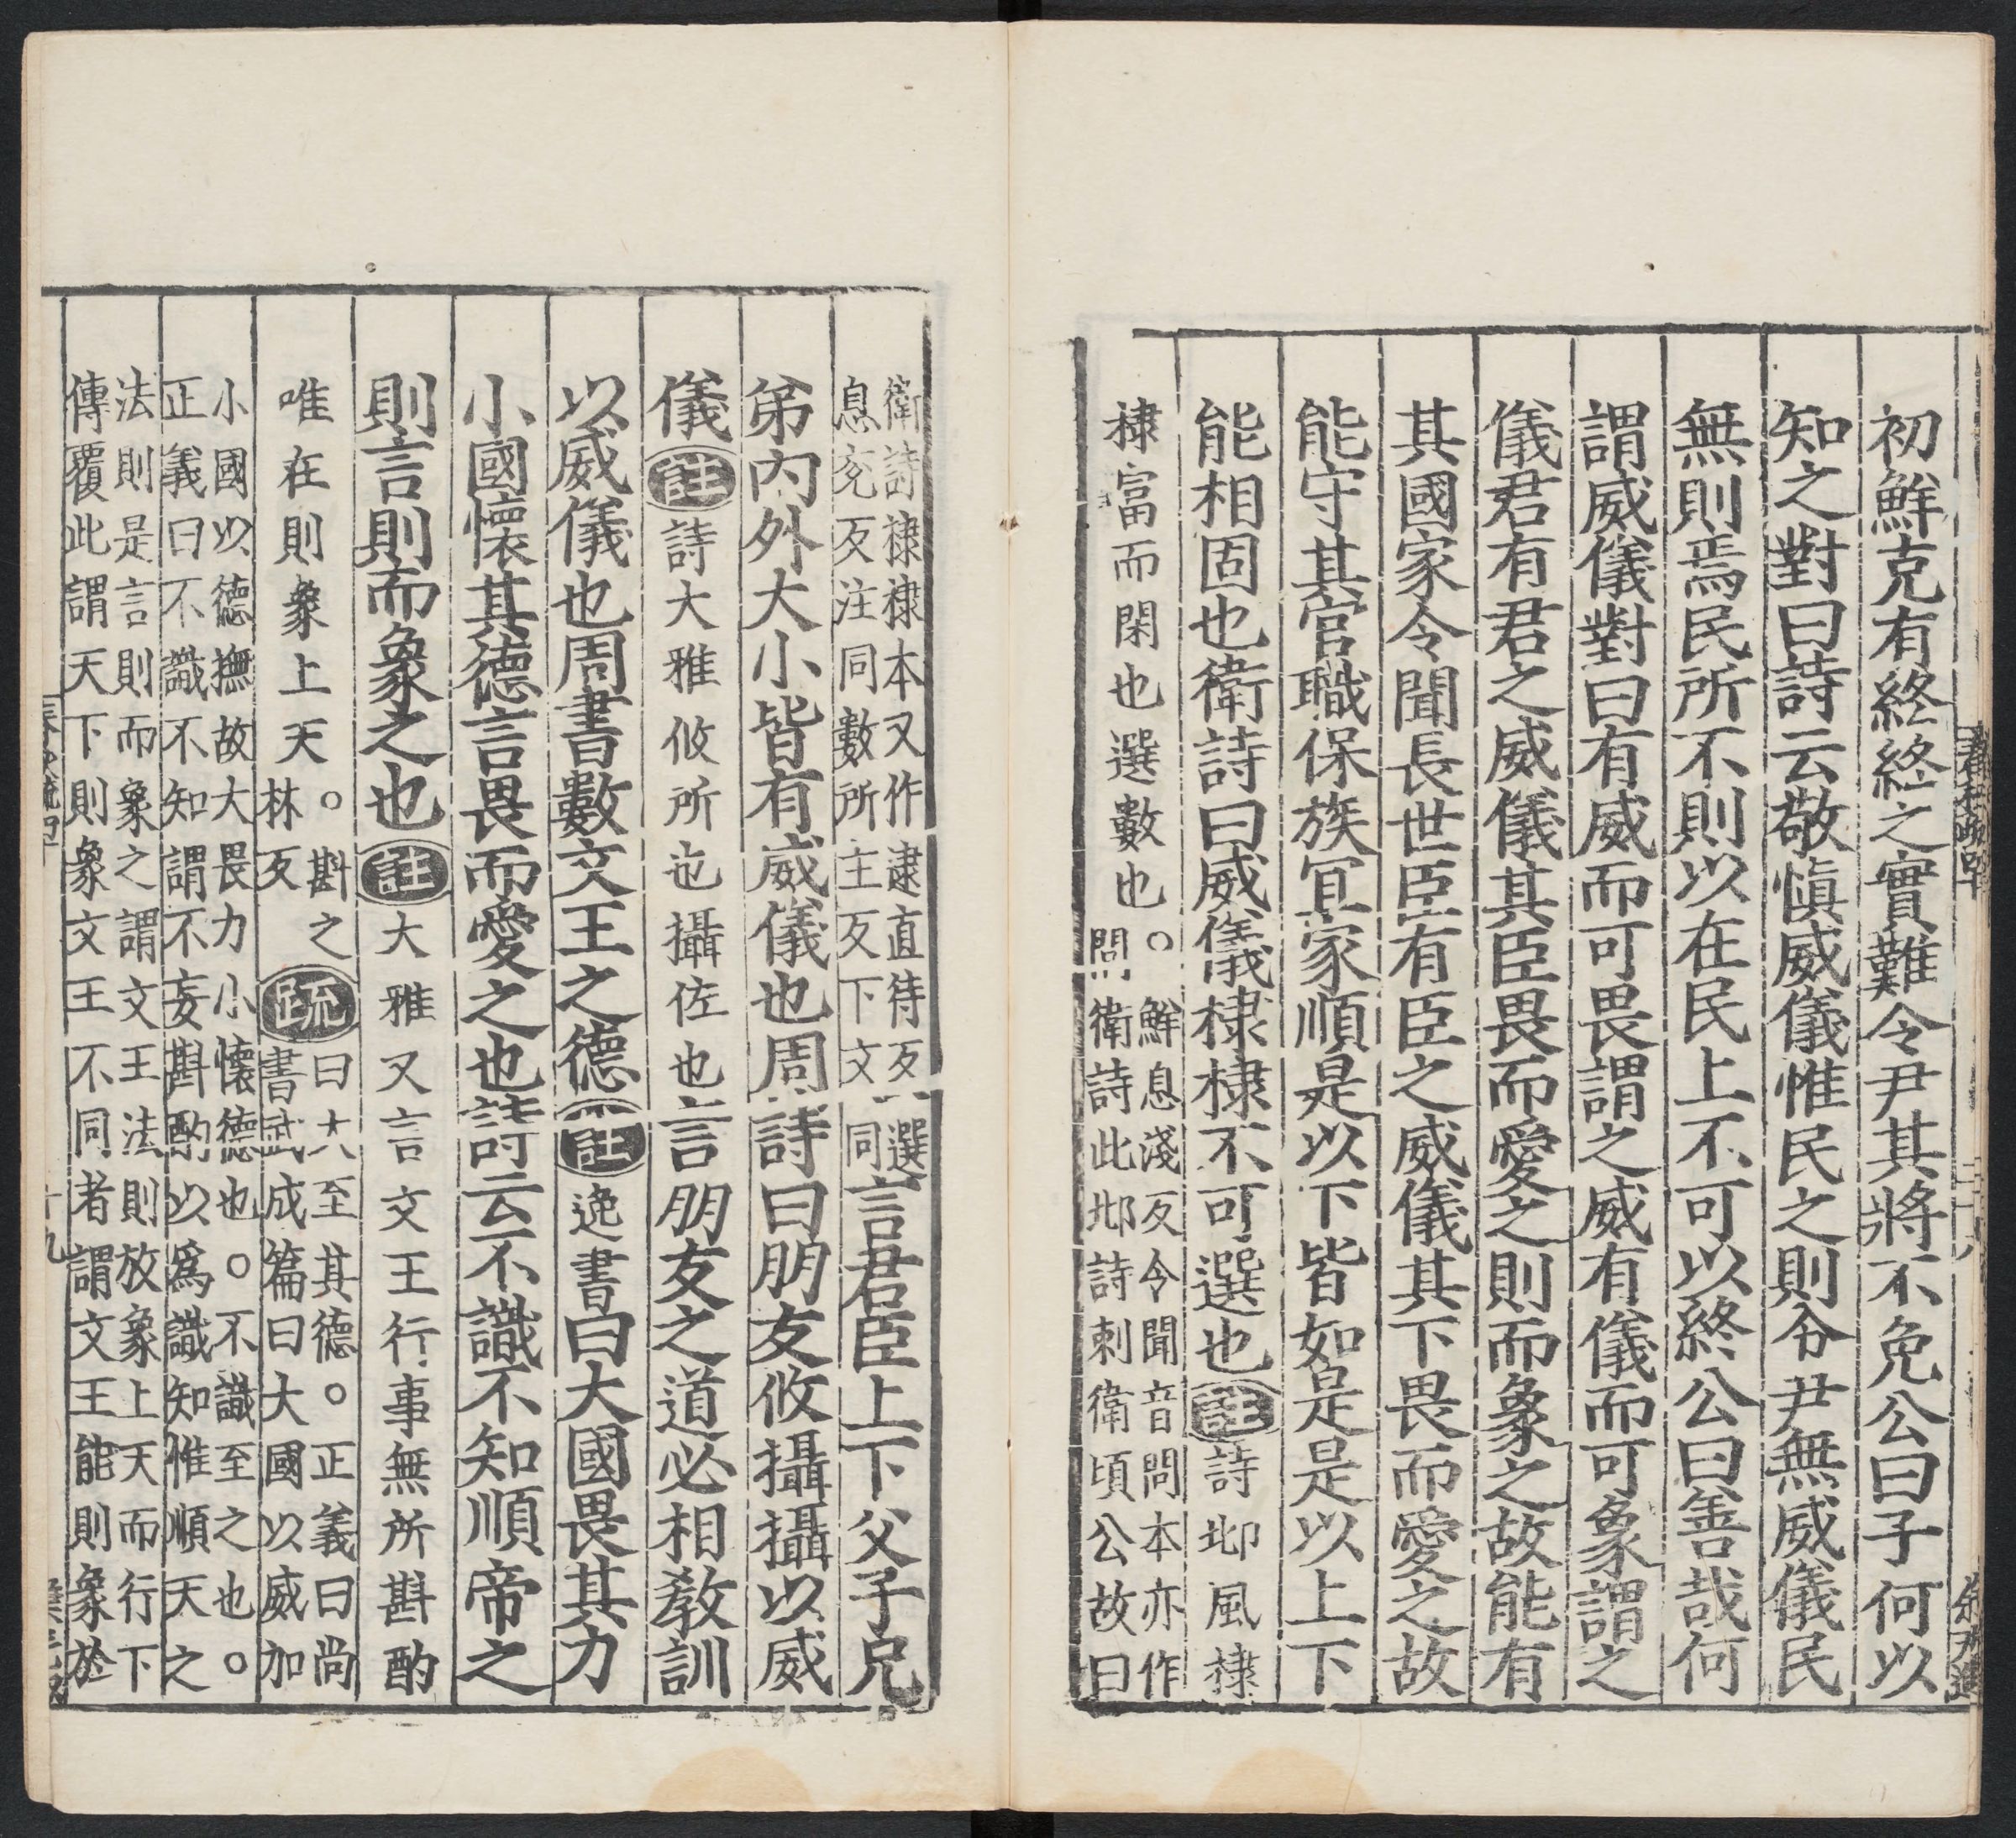 初鮮克有終終之實難令尹其將不免公曰子何以
知之對曰詩云敬慎威儀惟民之則令尹無威儀民
無則焉民所不則以在民上不可以終公曰善哉何
謂威儀對曰有威而可畏謂之威有儀而可象謂之
儀君有君之威儀其臣畏而愛之則而象之故能有
其國家令聞長世臣有臣之威儀其下畏而愛之故
能守其官職保族冝家順是以下皆如是是以上下
能相固也衛詩曰威儀棣棣不可選也註詩邶風棣
棣富而閑也選數也○鮮息淺反令聞音問本亦作
問衛詩此邶詩刺衛頃公故曰
衛詩棣棣本又作逮直待反選
息兗反注同數所主反下文同
言君臣上下父子兄
弟內外大小皆有威儀也周詩曰朋友攸攝攝以威
儀註詩大雅攸所也攝佐也言朋友之道必相敎訓
以威儀也周書數文王之德註逸書曰大國畏其力
小國懷其德言畏而愛之也詩云不識不知順帝之
則言則而象之也註大雅又言文王行事無所斟酌
唯在則象上天○斟之
林反
疏曰大至其德○正義曰尚
書武成篇曰大國以威加
小國以德撫故大畏力小懷德也○不識至之也○
正義曰不識不知謂不妄斟酌以爲識知惟順天之
法則是言則而象之謂文王法則放象上天而行下
傳覆此謂天下則象文王不同者謂文王能則象於